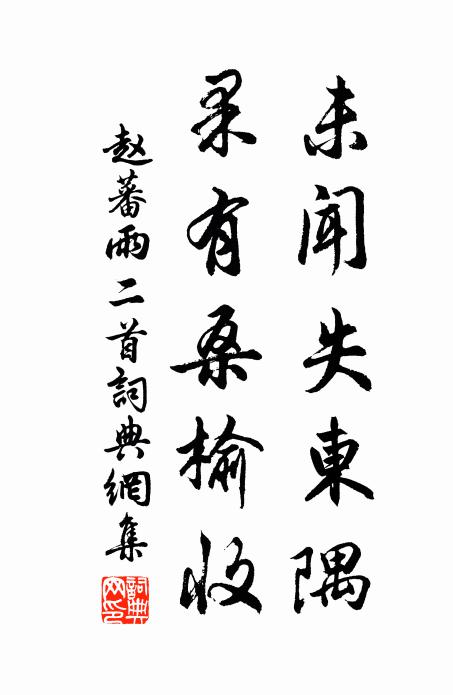 未聞失東隅
果有桑榆收
赵蕃雨二首詞典網集
詞典网印